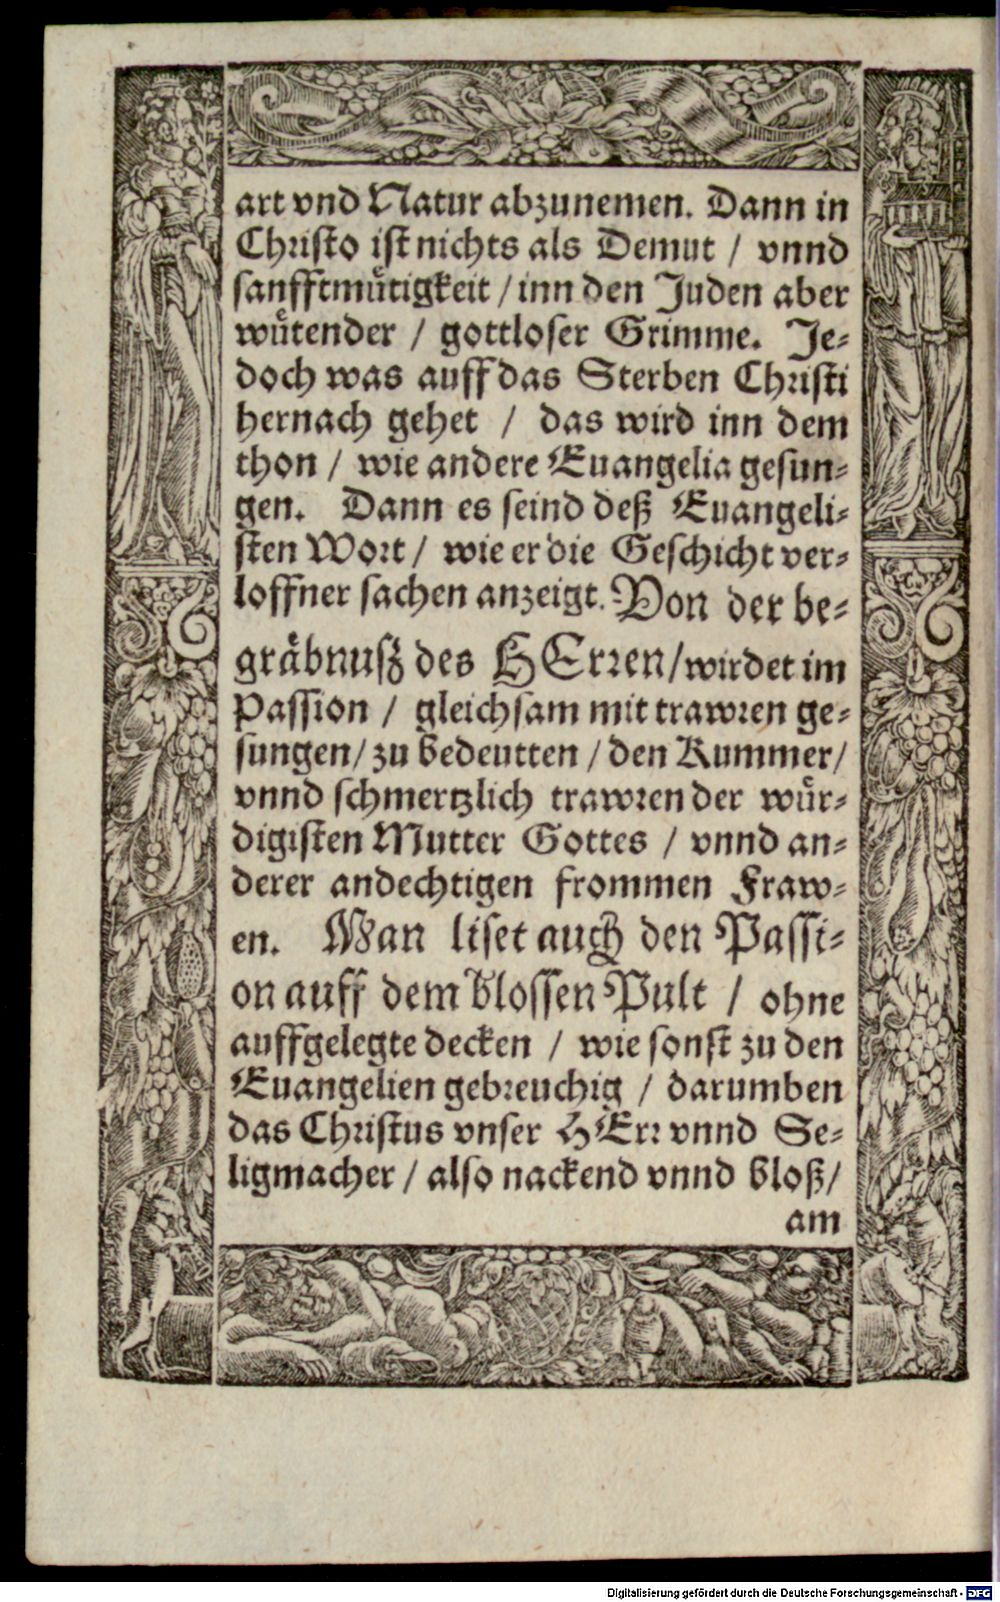 art vnd Natur abzunemen. Dann in
Christo ist nichts als Demut / vnnd
sanfftmuͤtigkeit / inn den Juden aber
wuͤtender / gottloser Grimme. Je-
doch was auff das Sterben Christi
hernach gehet / das wird inn dem
thon / wie andere Euangelia gesun-
gen. Dann es seind deß Euangeli-
sten Wort / wie er die Geschicht ver-
loffner sachen anzeigt. Von der be-
gräbnusz des HErren / wirdet im
Passion / gleichsam mit trawren ge-
sungen / zu bedeutten / den Kummer /
vnnd schmertzlich trawren der wuͤr-
digisten Mutter Gottes / vnnd an-
derer andechtigen frommen Fraw-
en. Man liset auch den Passi-
on auff dem blossen Pult / ohne
auffgelegte decken / wie sonst zu den
Euangelien gebreuchig / darumben
das Christus vnser HErr vnnd Se-
ligmacher / also nackend vnnd bloß /
am
Digitalisierung gefördert durch die Deutsche Forschungsgemeinschaft - DFG